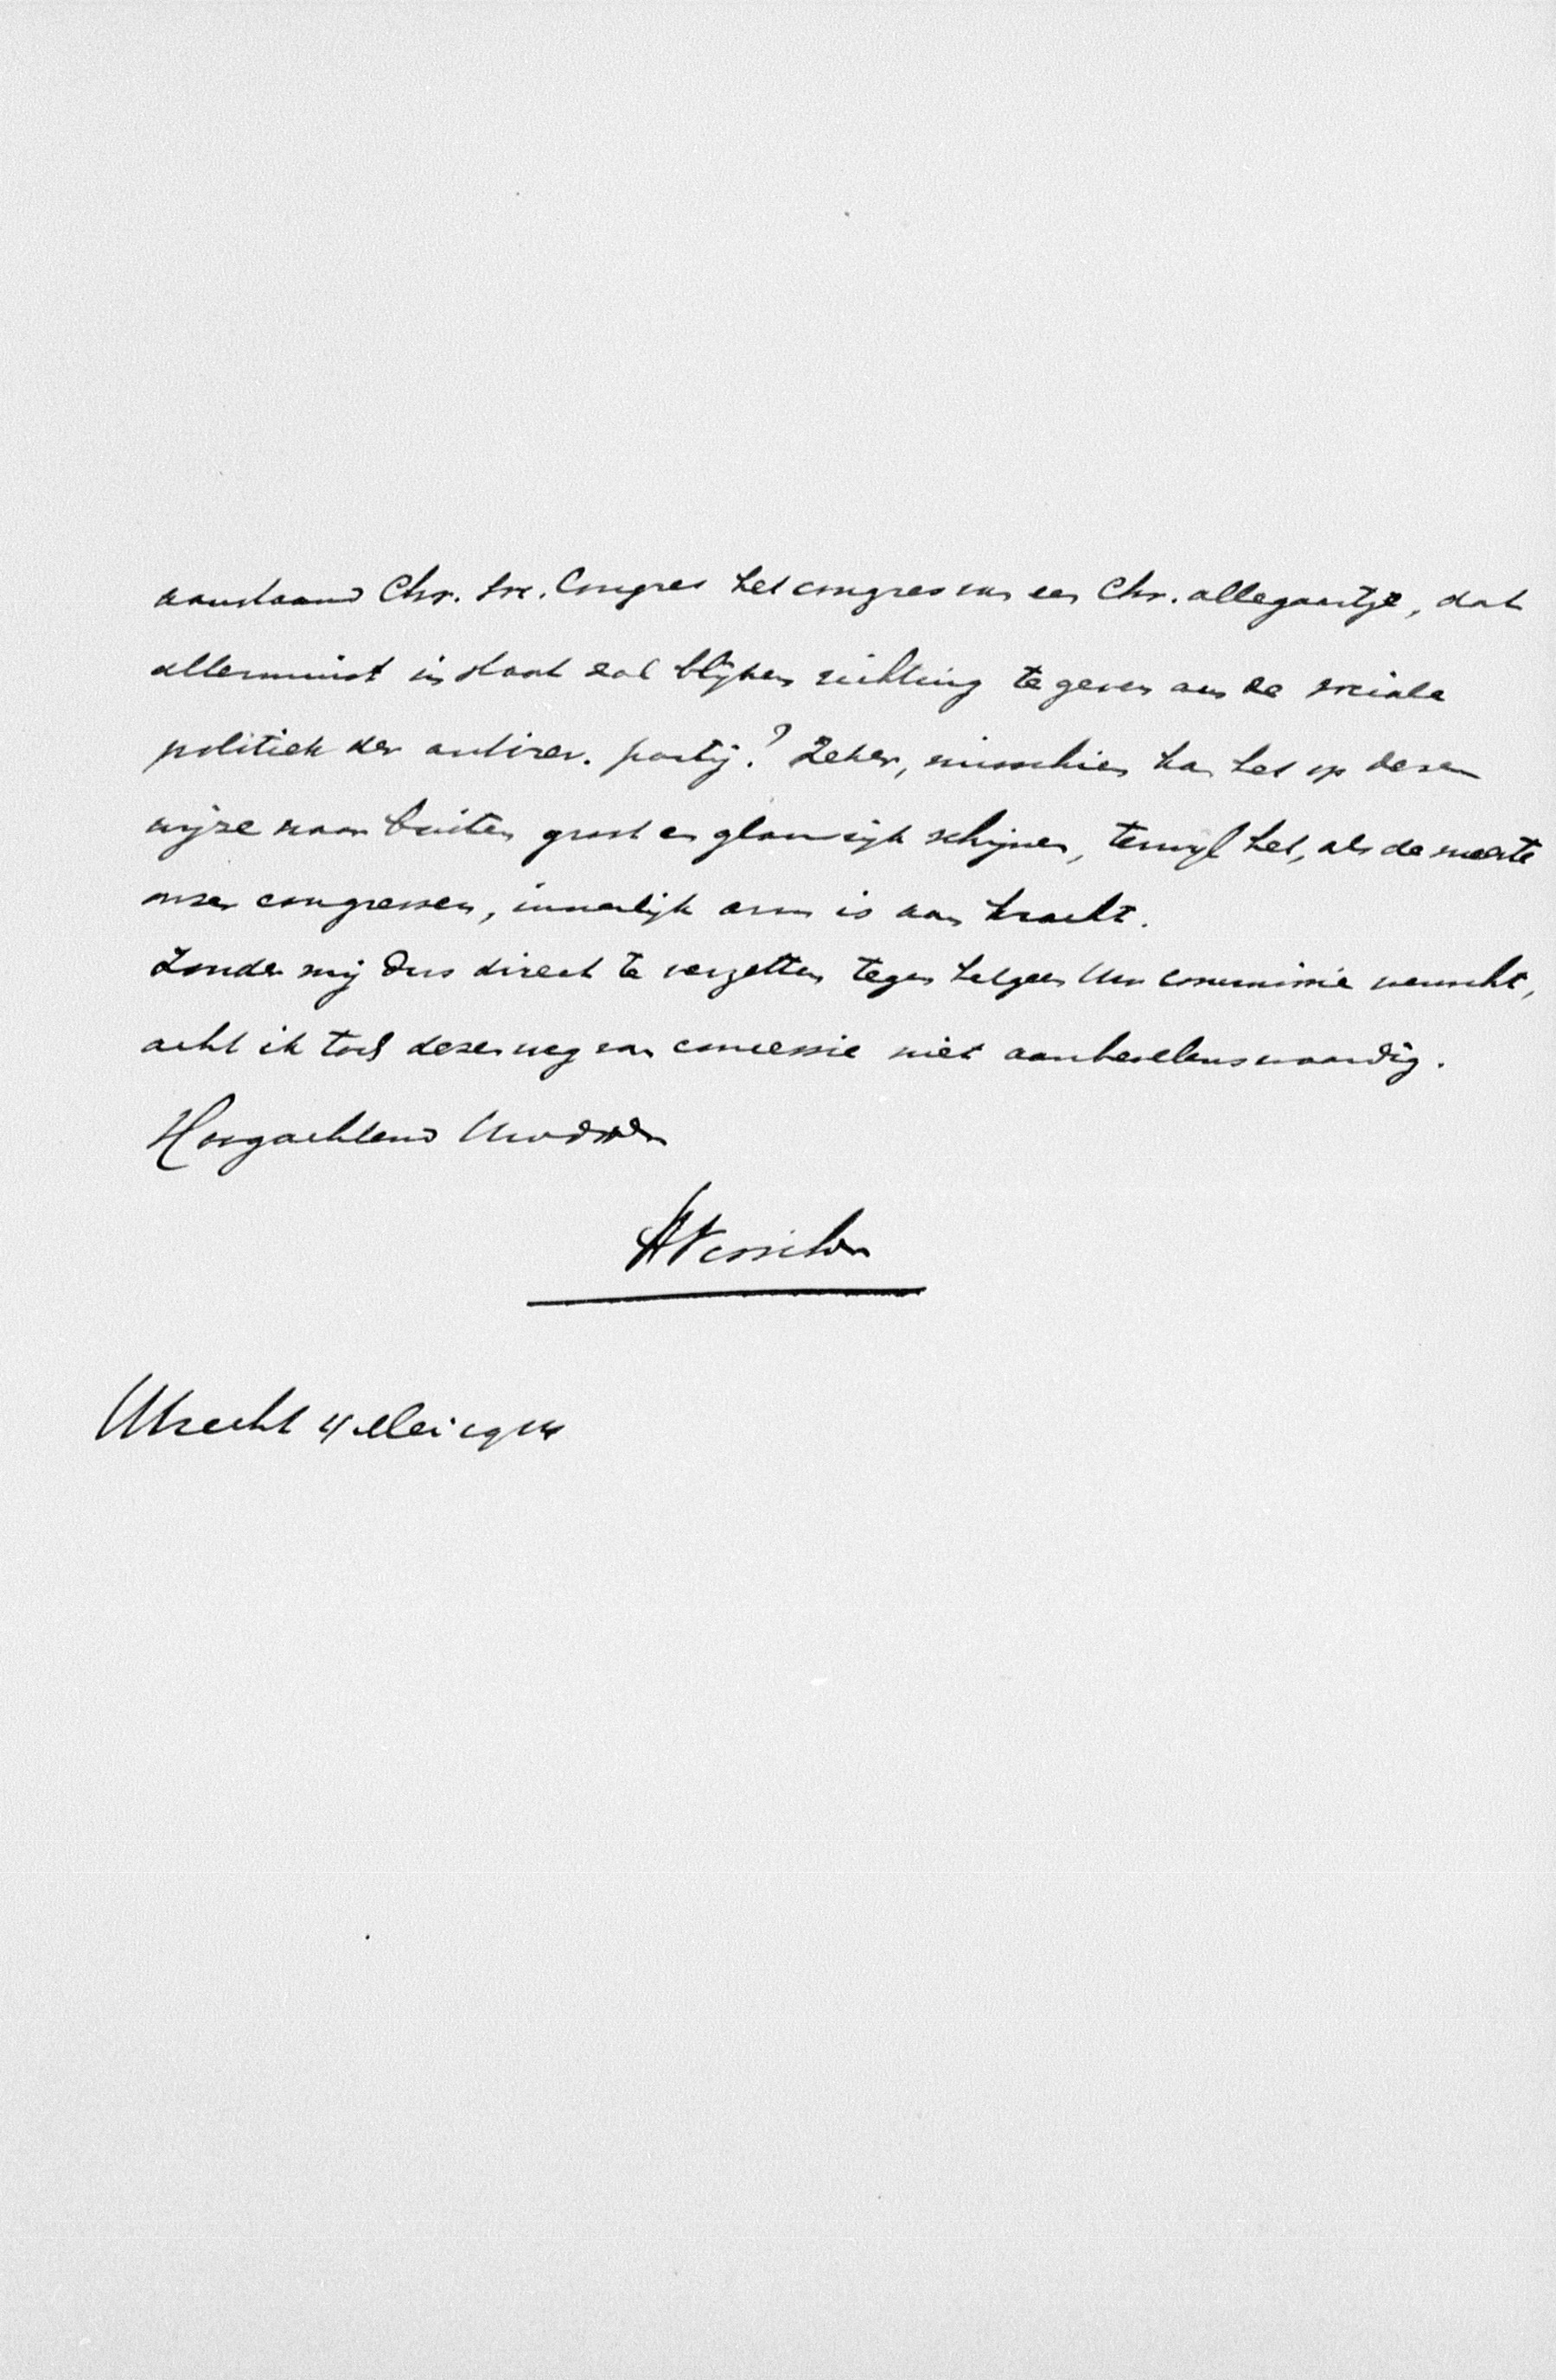 aanstaand Chr. Soc. Congres het congres van een Chr. allegaartje, dat
allerminst in staat zal blijken richting te geven aan de sociale
politiek der antirev. partij? Zeker, misschien kan het op deze
wijze naar buiten groot en glansrijk schijnen, terwijl het, als de meeste
onzer congressen, innerlijk arm is aan kracht.
Zonder mij dus direct te verzetten tegen hetgeen Uw commissie wenscht,
acht ik toch dezen weg van concessie niet aanbevelenswaardig.
Hoogachtend
Utrecht 4 Mei 1914